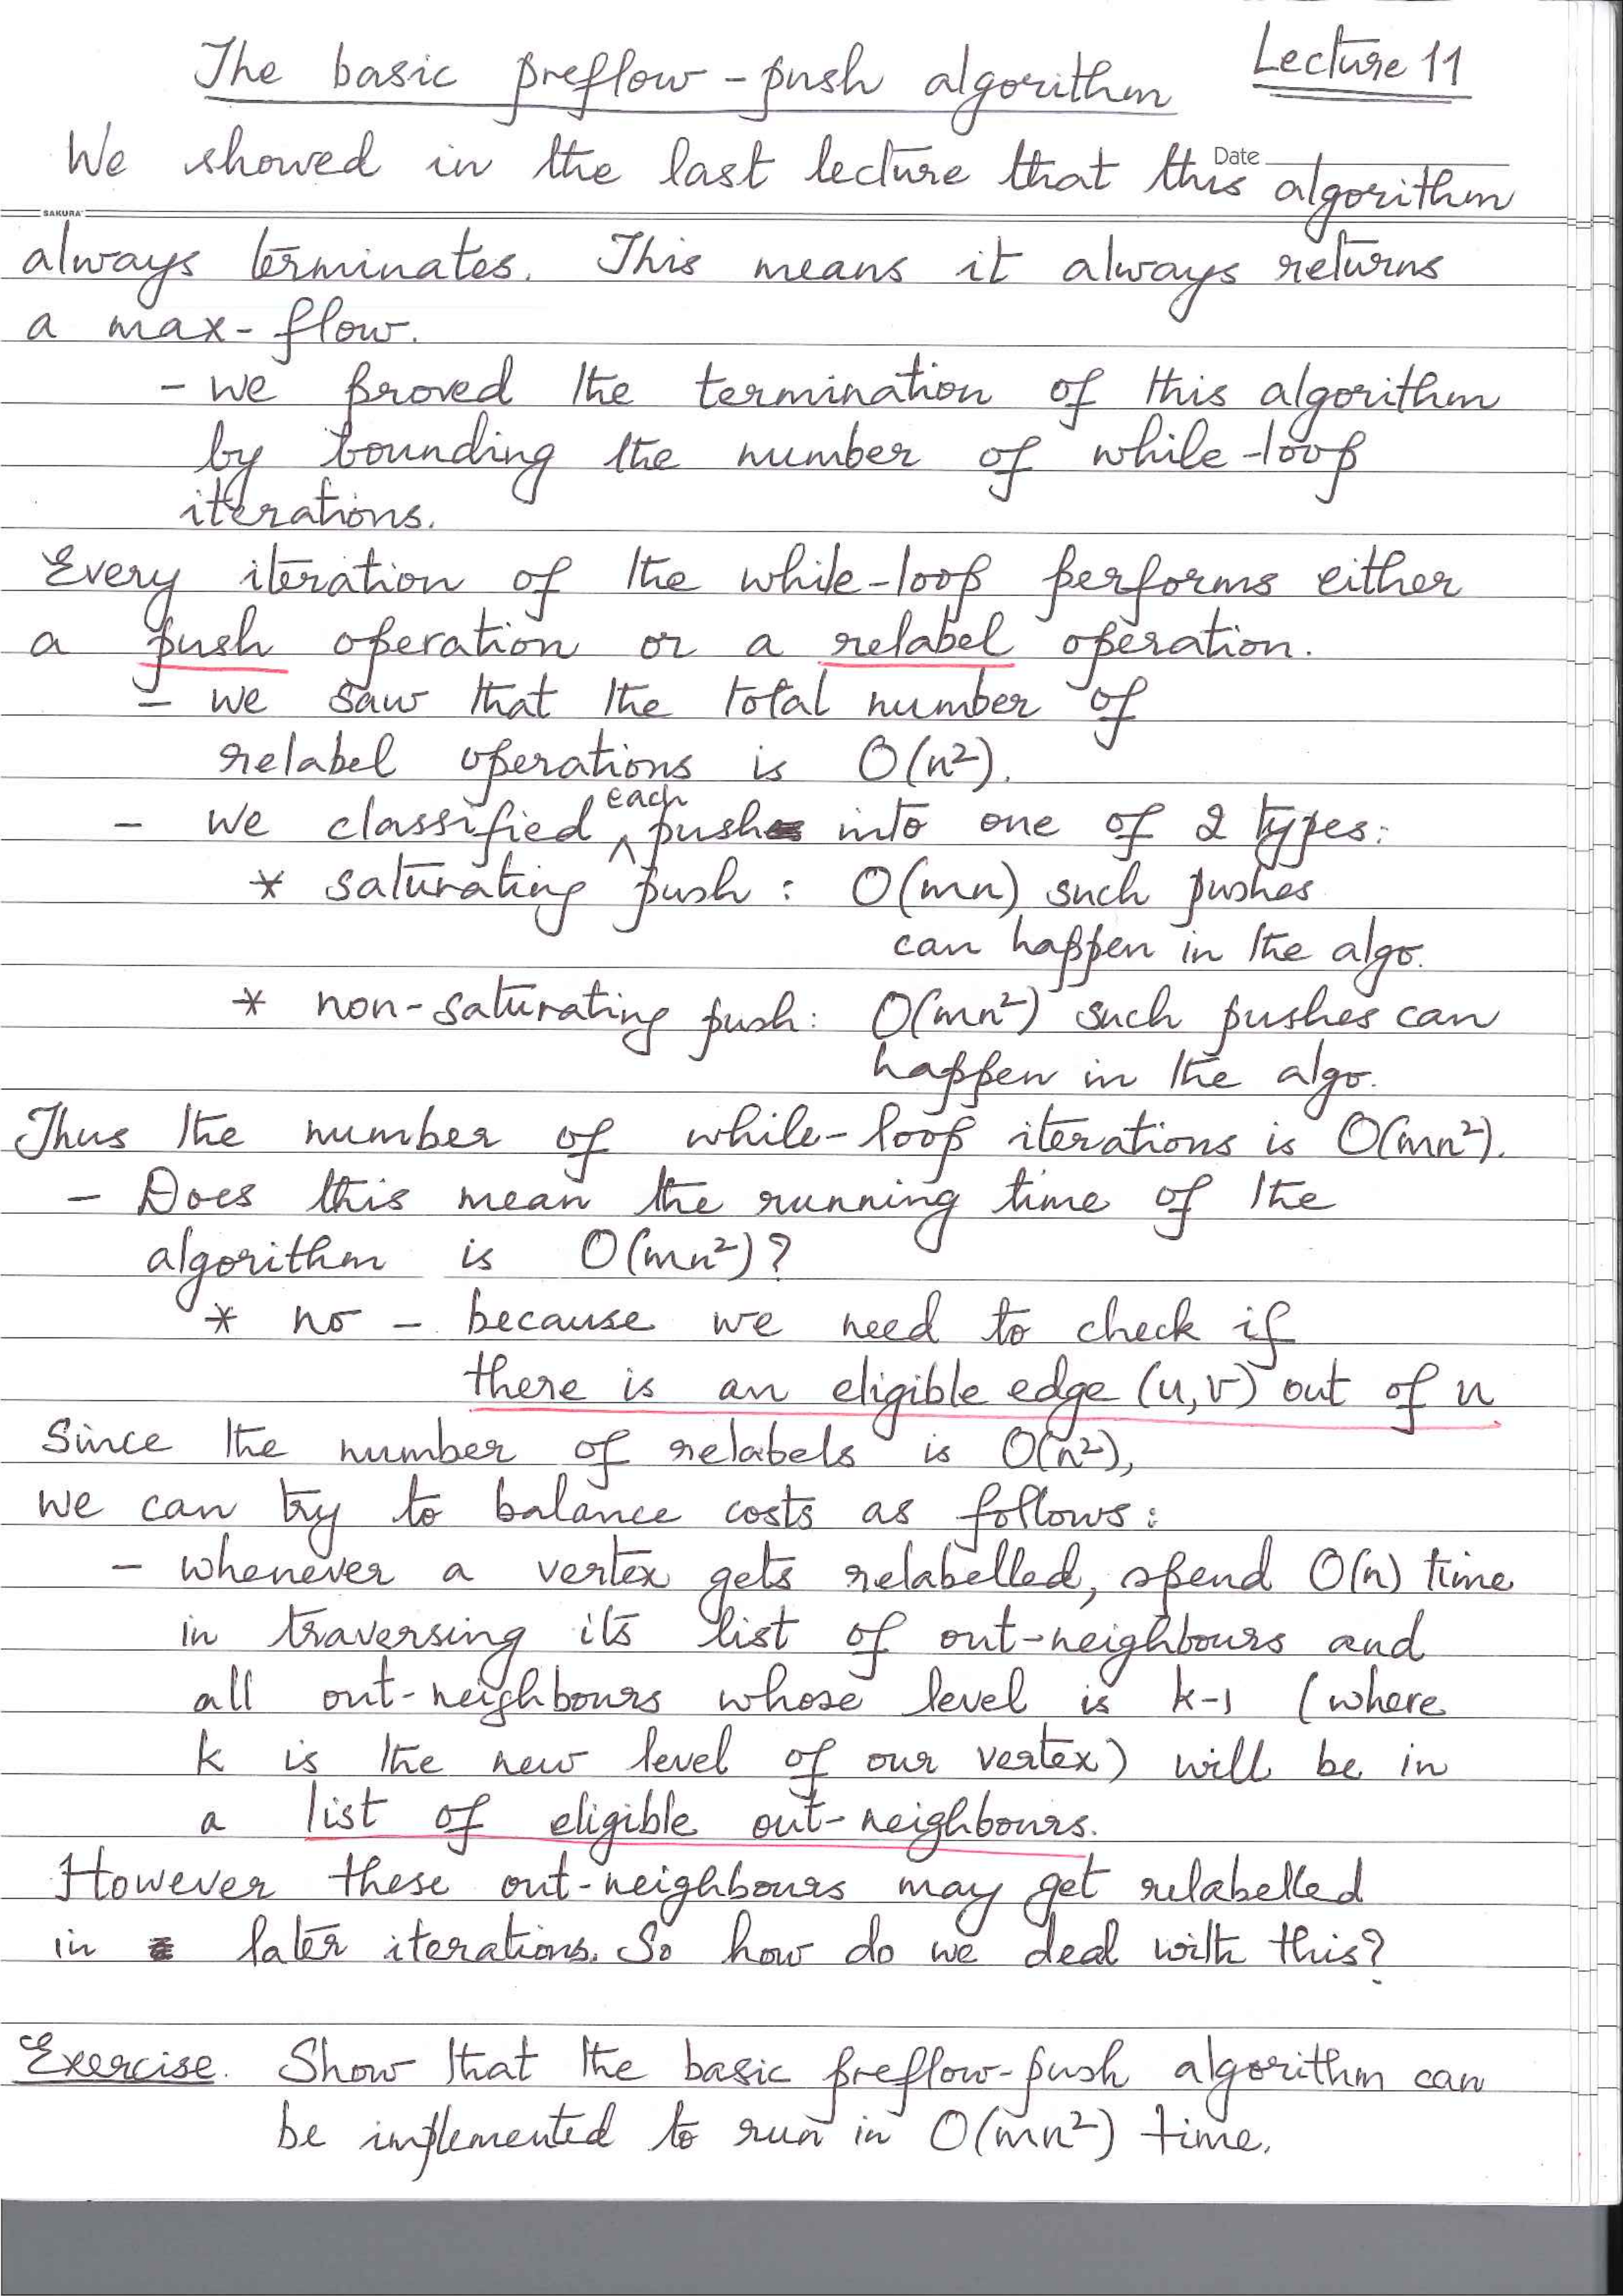 The basic preflow-push algorithm Lecture 11
Date
We showed in the last lecture that this algorithm
SAKURA
always terminates. This means it always returns
a max-flow.
- we proved the termination of this algorithm
by bounding the number of while-loop
iterations.
Every iteration of the while-loop performs either
a push operation or a relabel operation.
- we saw that the total number of
relabel operations is O(n²).
- we classified each push into one of 2 types:
* saturating push: O(mn) such pushes
can happen in the algo.
* non-saturating push: O(mn²) such pushes can
happen in the algo.
Thus the number of while-loop iterations is O(mn²).
- Does this mean the running time of the
algorithm is O(mn²)?
* no - because we need to check if
there is an eligible edge (u,v) out of u
Since the number of relabels is O(n²),
we can try to balance costs as follows:
- whenever a vertex gets relabelled, spend O(n) time
in traversing its list of out-neighbours and
all out-neighbours whose level is k-1 (where
k is the new level of our vertex) will be in
a list of eligible out-neighbours.
However these out-neighbours may get relabelled
in later iterations. So how do we deal with this?
Exercise. Show that the basic preflow-push algorithm can
be implemented to run in O(mn²) time.